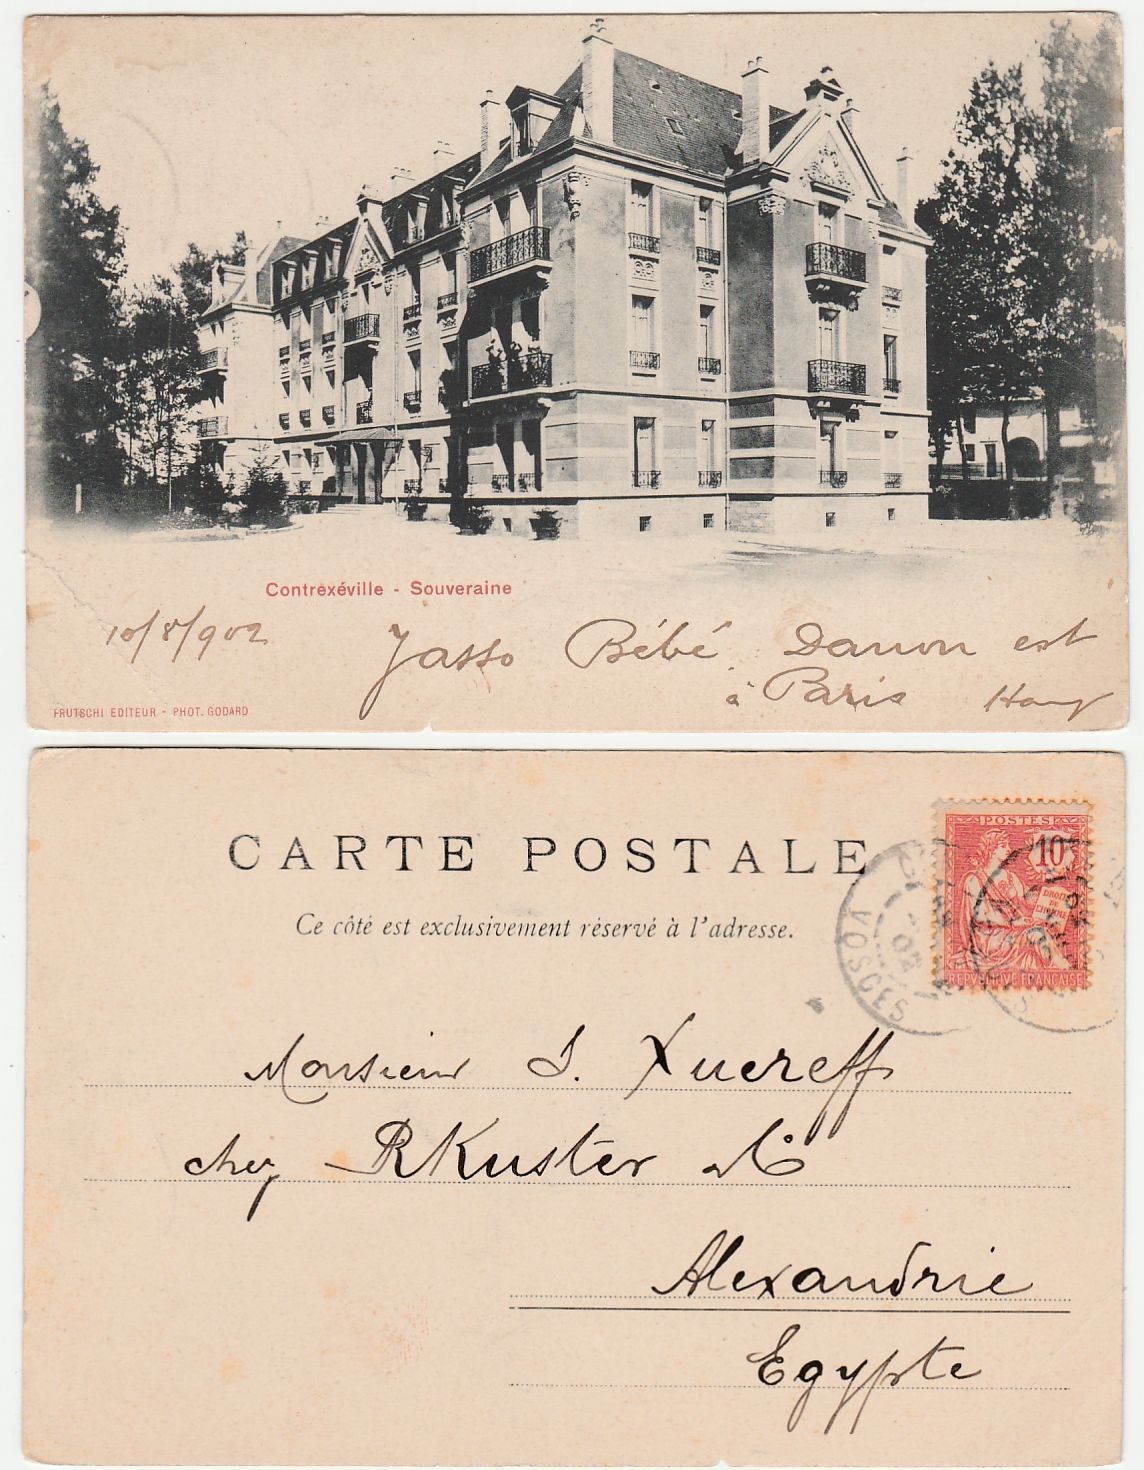 Contrexéville - Souveraine
10/8/902
Yasso Bébé. Danon est
à Paris
FRUTSCHI EDITEUR - PHOT. GODARD
CARTE POSTALE
Ce côté est exclusivement réservé à l'adresse.
POSTES
10
DROITS
DE
L'HOMME
REPUBLIQUE FRANÇAISE
VOSGES
02
Monsieur J. Xuereff
chez RKuster & Co
Alexandrie
Egypte